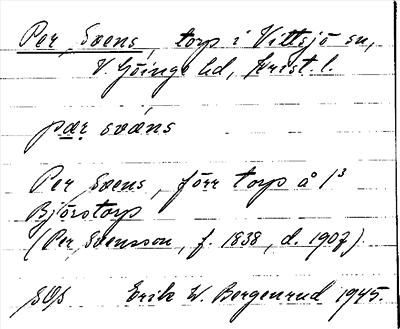 Per Svens, torp i Vittsjö sn,
V. Göinge hd, Krist. l.
pær svæns
Per Svens, förr torp å 1³
Björstorp
(Per Svensson, f. 1838, d. 1907).
SOS Erik W. Bergenrud 1945.